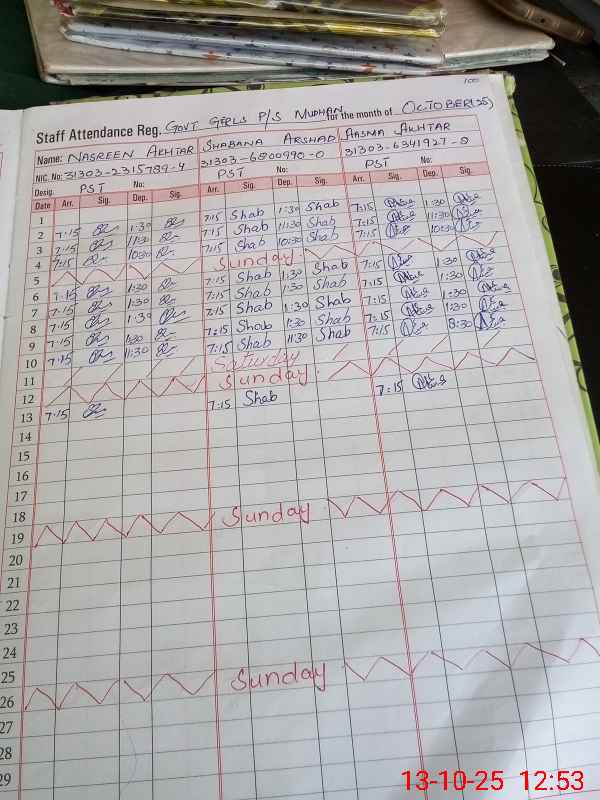 100
Staff Attendance Reg. GOVT GERLS P/S MUDHAN for the month of OCTOBER(25)
Name: NASREEN AKHTAR SHABANA ARSHAD AASMA AKHTAR
NIC. No: 31303-2315789-4 31303-6800990-0 31303-6341927-8
Desig. PST No: PST No: PST No:
Date Arr. Sig. Dep. Sig. Arr. Sig. Dep. Sig. Arr. Sig. Dep. Sig.
1
2 7:15 1:30 7:15 Shab 1:30 Shab 7:15 1:30
3 7:15 11:30 7:15 Shab 11:30 Shab 7:15 11:30
4 7:15 10:30 7:15 Shab 10:30 Shab 7:15 10:30
5 Sunday
6 7:15 1:30 7:15 Shab 1:30 Shab 7:15 1:30
7 7:15 1:30 7:15 Shab 1:30 Shab 7:15 1:30
8 7:15 1:30 7:15 Shab 1:30 Shab 7:15 1:30
9 7:15 1:30 7:15 Shab 1:30 Shab 7:15 1:30
10 7:15 11:30 7:15 Shab 11:30 Shab 7:15 8:30
11 Saturday
12 Sunday
13 7:15 7:15 Shab 7:15
14
15
16
17
18
19 Sunday
20
21
22
23
24
25
26 Sunday
27
28
29
13-10-25 12:53